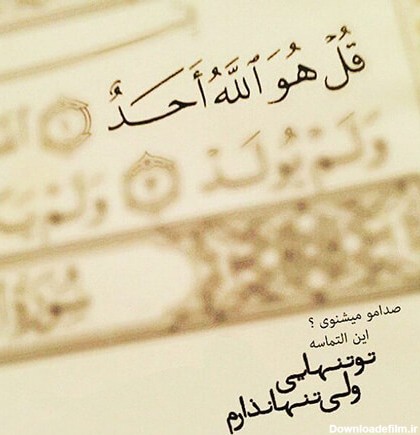 قُلْ هُوَ ٱللَّهُ أَحَدٌ ١
وَلَمْ يُولَدْ ٣ وَلَمْ
سُورَةُ
صدامو میشنوی ؟
این التماسه
تو تنهایی
ولی تنها نذارم
Downloadefilm.ir